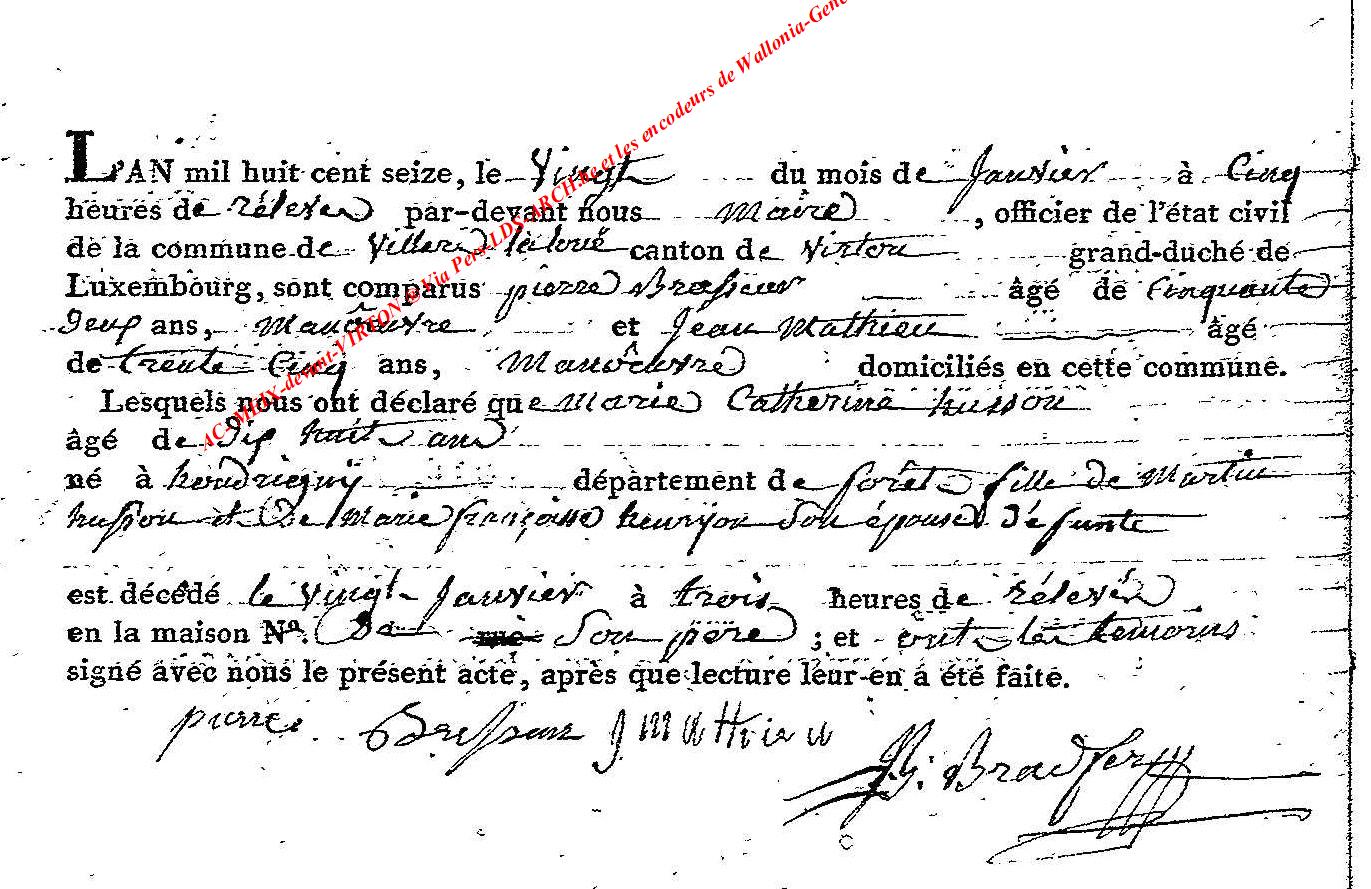 L'AN mil huit cent seize, le Vingt du mois de Janvier à Cinq
heures de rélevée par-devant nous Maire, officier de l'état civil
de la commune de Villers la loue canton de Virton grand-duché de
Luxembourg, sont comparus pierre Brasseur âgé de Cinquante
deux ans, Manœuvre et Jean Mathieu âgé
de trente Cinq ans, Manœuvre domiciliés en cette commune.
Lesquels nous ont déclaré que Marie Catherine husson
âgé de Dix huit ans
né à houdrigny département de forêt fille de Martin
husson et De Marie françoise henryon son épouse défunte
est décédé le vingt Janvier à trois heures de rélevée
en la maison Nº. De son père ; et ont les temoins
signé avec nous le présent acte, après que lecture leur en a été faite.
pierre Brasseur J Mathieu
Bradfer
AC-MHDX-devant-VIRTON @ Via Pers-LDS-ARCH.be et les encodeurs de Wallonia-Gene